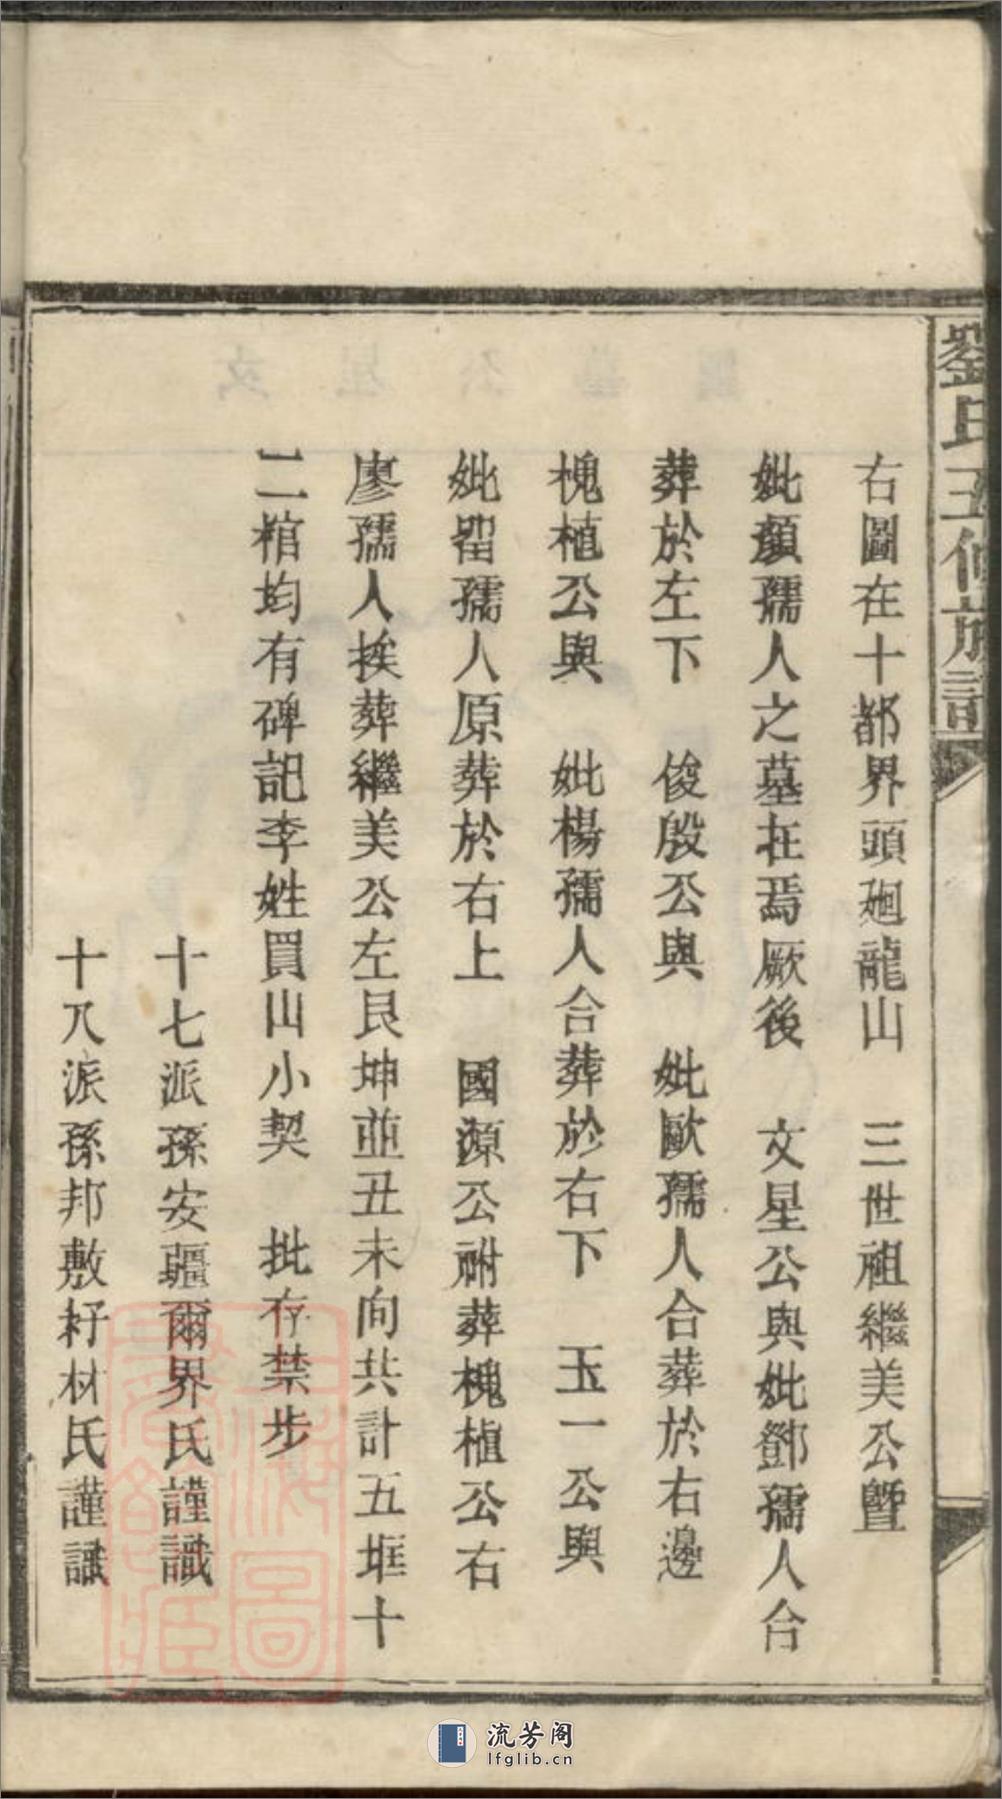 劉氏五修族譜
右圖在十都界頭廻龍山　三世祖繼美公暨
妣顏孺人之墓在焉厥後　文星公與妣鄧孺人合
葬於左下　俊殷公與　妣歐孺人合葬於右邊
槐植公與　妣楊孺人合葬於右下　玉一公與
妣畱孺人原葬於右上　國源公祔葬槐植公右
廖孺人挨葬繼美公左艮坤並丑未向共計五塚十
二棺均有碑記李姓買山小契　批存禁步
十七派孫安疆爾界氏謹識
十八派孫邦敷杍材氏謹識
上海圖書館藏
流芳阁
lfglib.cn